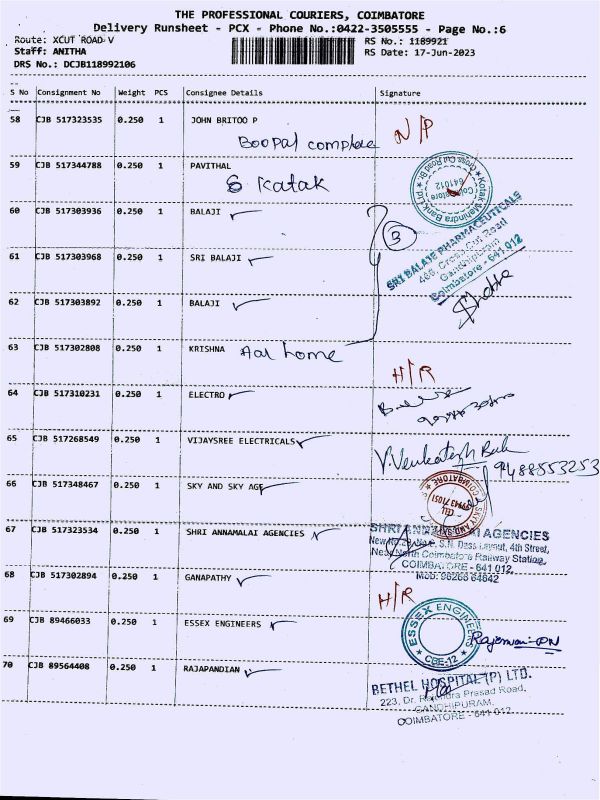 THE PROFESSIONAL COURIERS, COIMBATORE
Delivery Runsheet - PCX - Phone No.:0422-3505555 - Page No.:6
Route: XCUT ROAD-V RS No.: 1189921
Staff: ANITHA RS Date: 17-Jun-2023
DRS No.: DCJB118992106
S No Consignment No Weight PCS Consignee Details Signature
58 CJB 517323535 0.250 1 JOHN BRITOO P
Boopal complae N/P
59 CJB 517344788 0.250 1 PAVITHAL
Katak
Kotak Mahindra Bank Ltd
Cross Cut Road Br.
Coimbatore
641012
60 CJB 517303936 0.250 1 BALAJI
3
61 CJB 517303968 0.250 1 SRI BALAJI
SRI BALAJI PHARMACEUTICALS
Cross Cut Road
Gandhipuram
Coimbatore - 641 012
62 CJB 517303892 0.250 1 BALAJI
63 CJB 517302808 0.250 1 KRISHNA
Aal home
H/R
64 CJB 517310231 0.250 1 ELECTRO
65 CJB 517268549 0.250 1 VIJAYSREE ELECTRICALS
V. Venkatesh Bab
9488553253
66 CJB 517348467 0.250 1 SKY AND SKY AGE
COIMBATORE
67 CJB 517323534 0.250 1 SHRI ANNAMALAI AGENCIES
SHRI ANNAMALAI AGENCIES
S.N. Dass Layout, 4th Street,
Near North Coimbatore Railway Station,
COIMBATORE - 641 012.
Mob: 98266 64642
68 CJB 517302894 0.250 1 GANAPATHY
H/R
69 CJB 89466033 0.250 1 ESSEX ENGINEERS
ESSEX ENGINEE
CBE-12
70 CJB 89564408 0.250 1 RAJAPANDIAN
BETHEL HOSPITAL (P) LTD.
223, Dr. Rajendra Prasad Road,
GANDHIPURAM,
COIMBATORE - 641 012